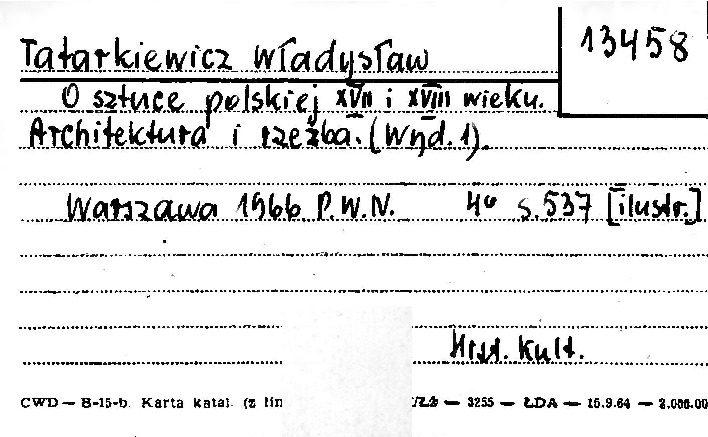 13458
Tatarkiewicz Władysław
O sztuce polskiej XVII i XVIII wieku.
Architektura i rzeźba. (Wyd. 1).
Warszawa 1966 P.W.N. 4° s. 537 [ilustr.]
Hist. Kult.
CWD — B-15-b. Karta katal. (z lin — 3255 — ŁDA — 15.9.64 — 2.000.00